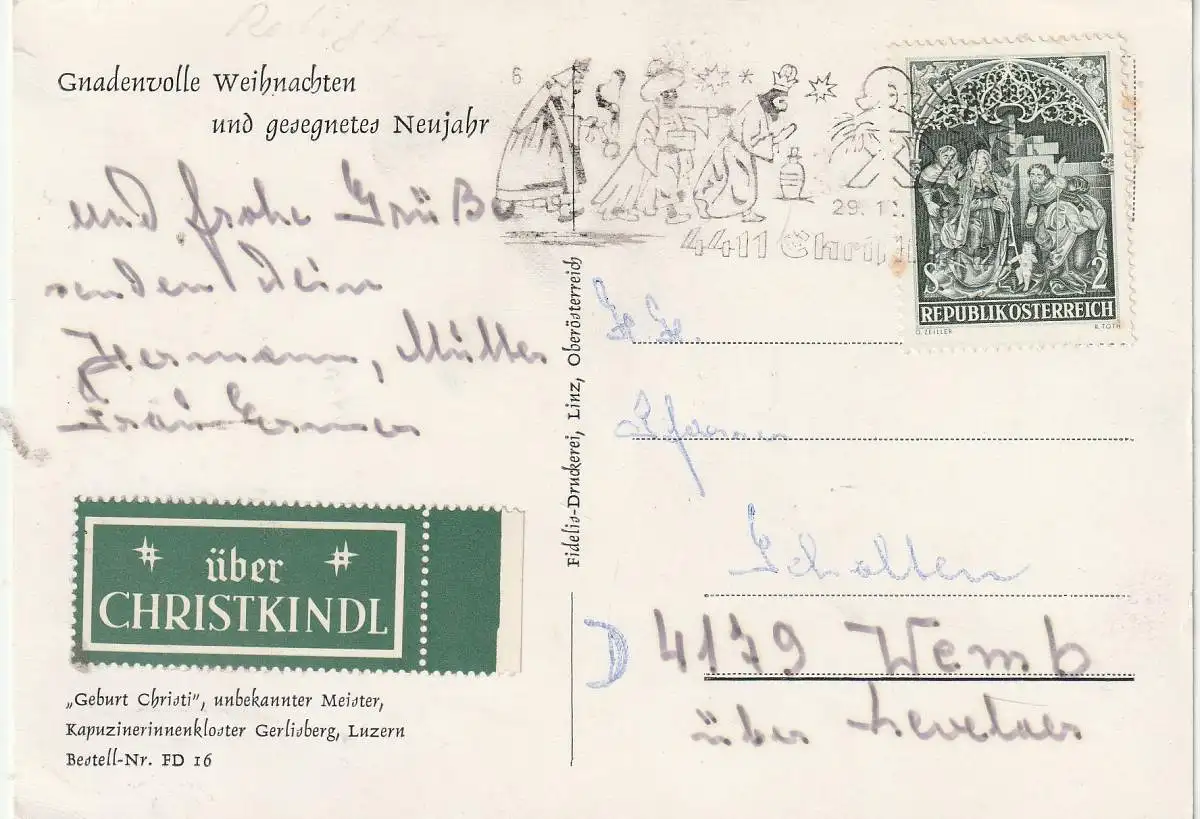 Gnadenvolle Weihnachten
und gesegnetes Neujahr
und frohe Grüße
senden dein
Hermann, Mutter
Frau
6
29. 1
4411 Christ
S 2
REPUBLIK ÖSTERREICH
O. ZEILLER R. TOTH
Fidelis-Druckerei, Linz, Oberösterreich
über
CHRISTKINDL
„Geburt Christi", unbekannter Meister,
Kapuzinerinnenkloster Gerlisberg, Luzern
Bestell-Nr. FD 16
Scholten
D 4179 Wemb
über Kevelaer